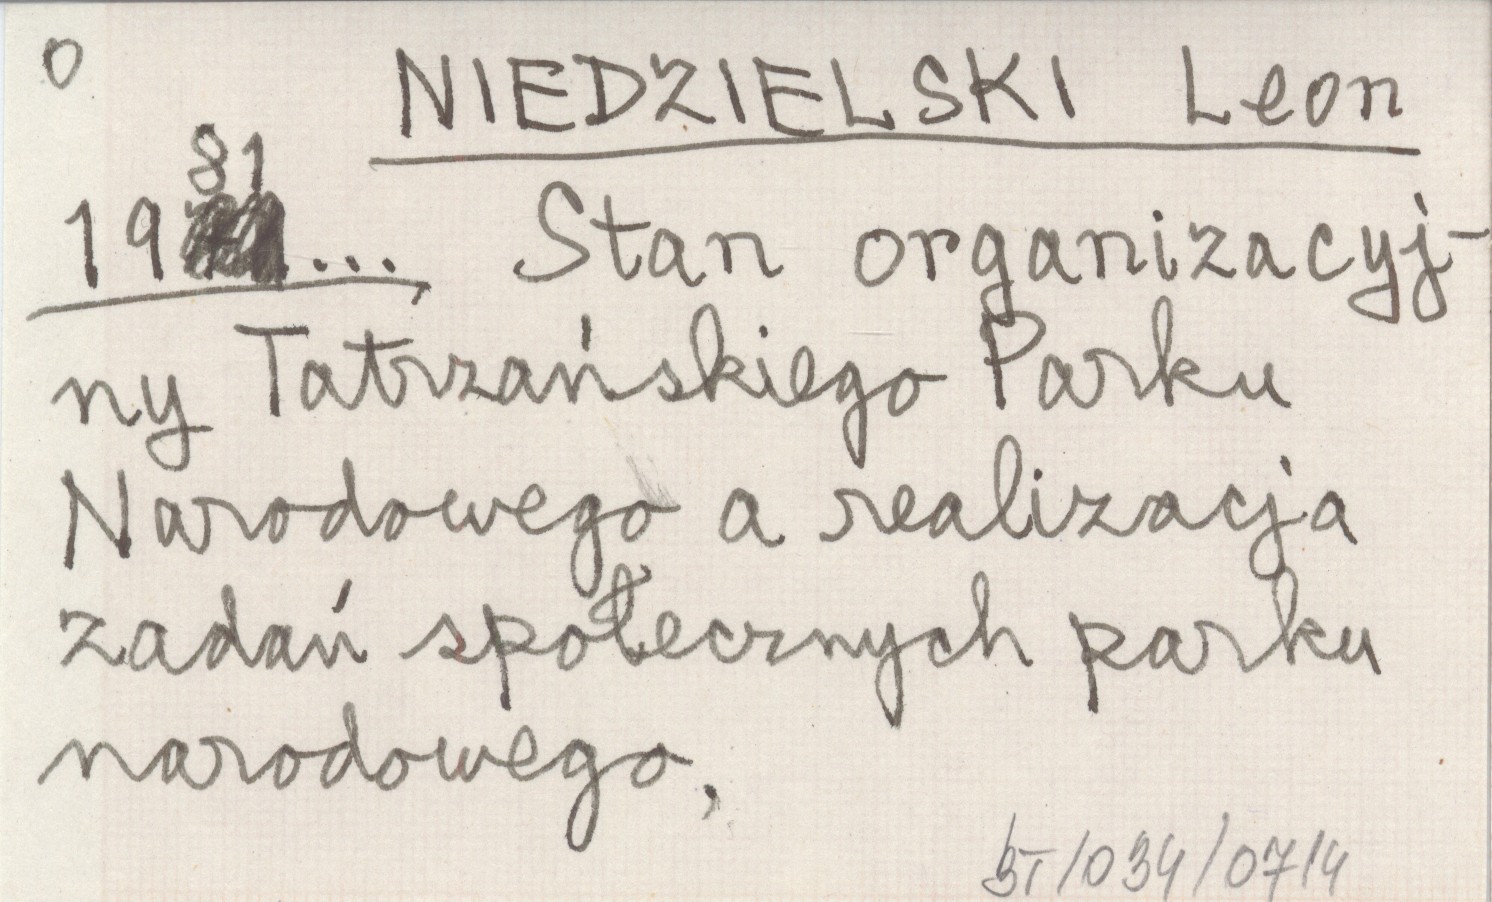 0
NIEDZIELSKI Leon
81
19 ..., Stan organizacyj-
ny Tatrzańskiego Parku
Narodowego a realizacja
zadań społecznych parku
narodowego,
BT/034/0714